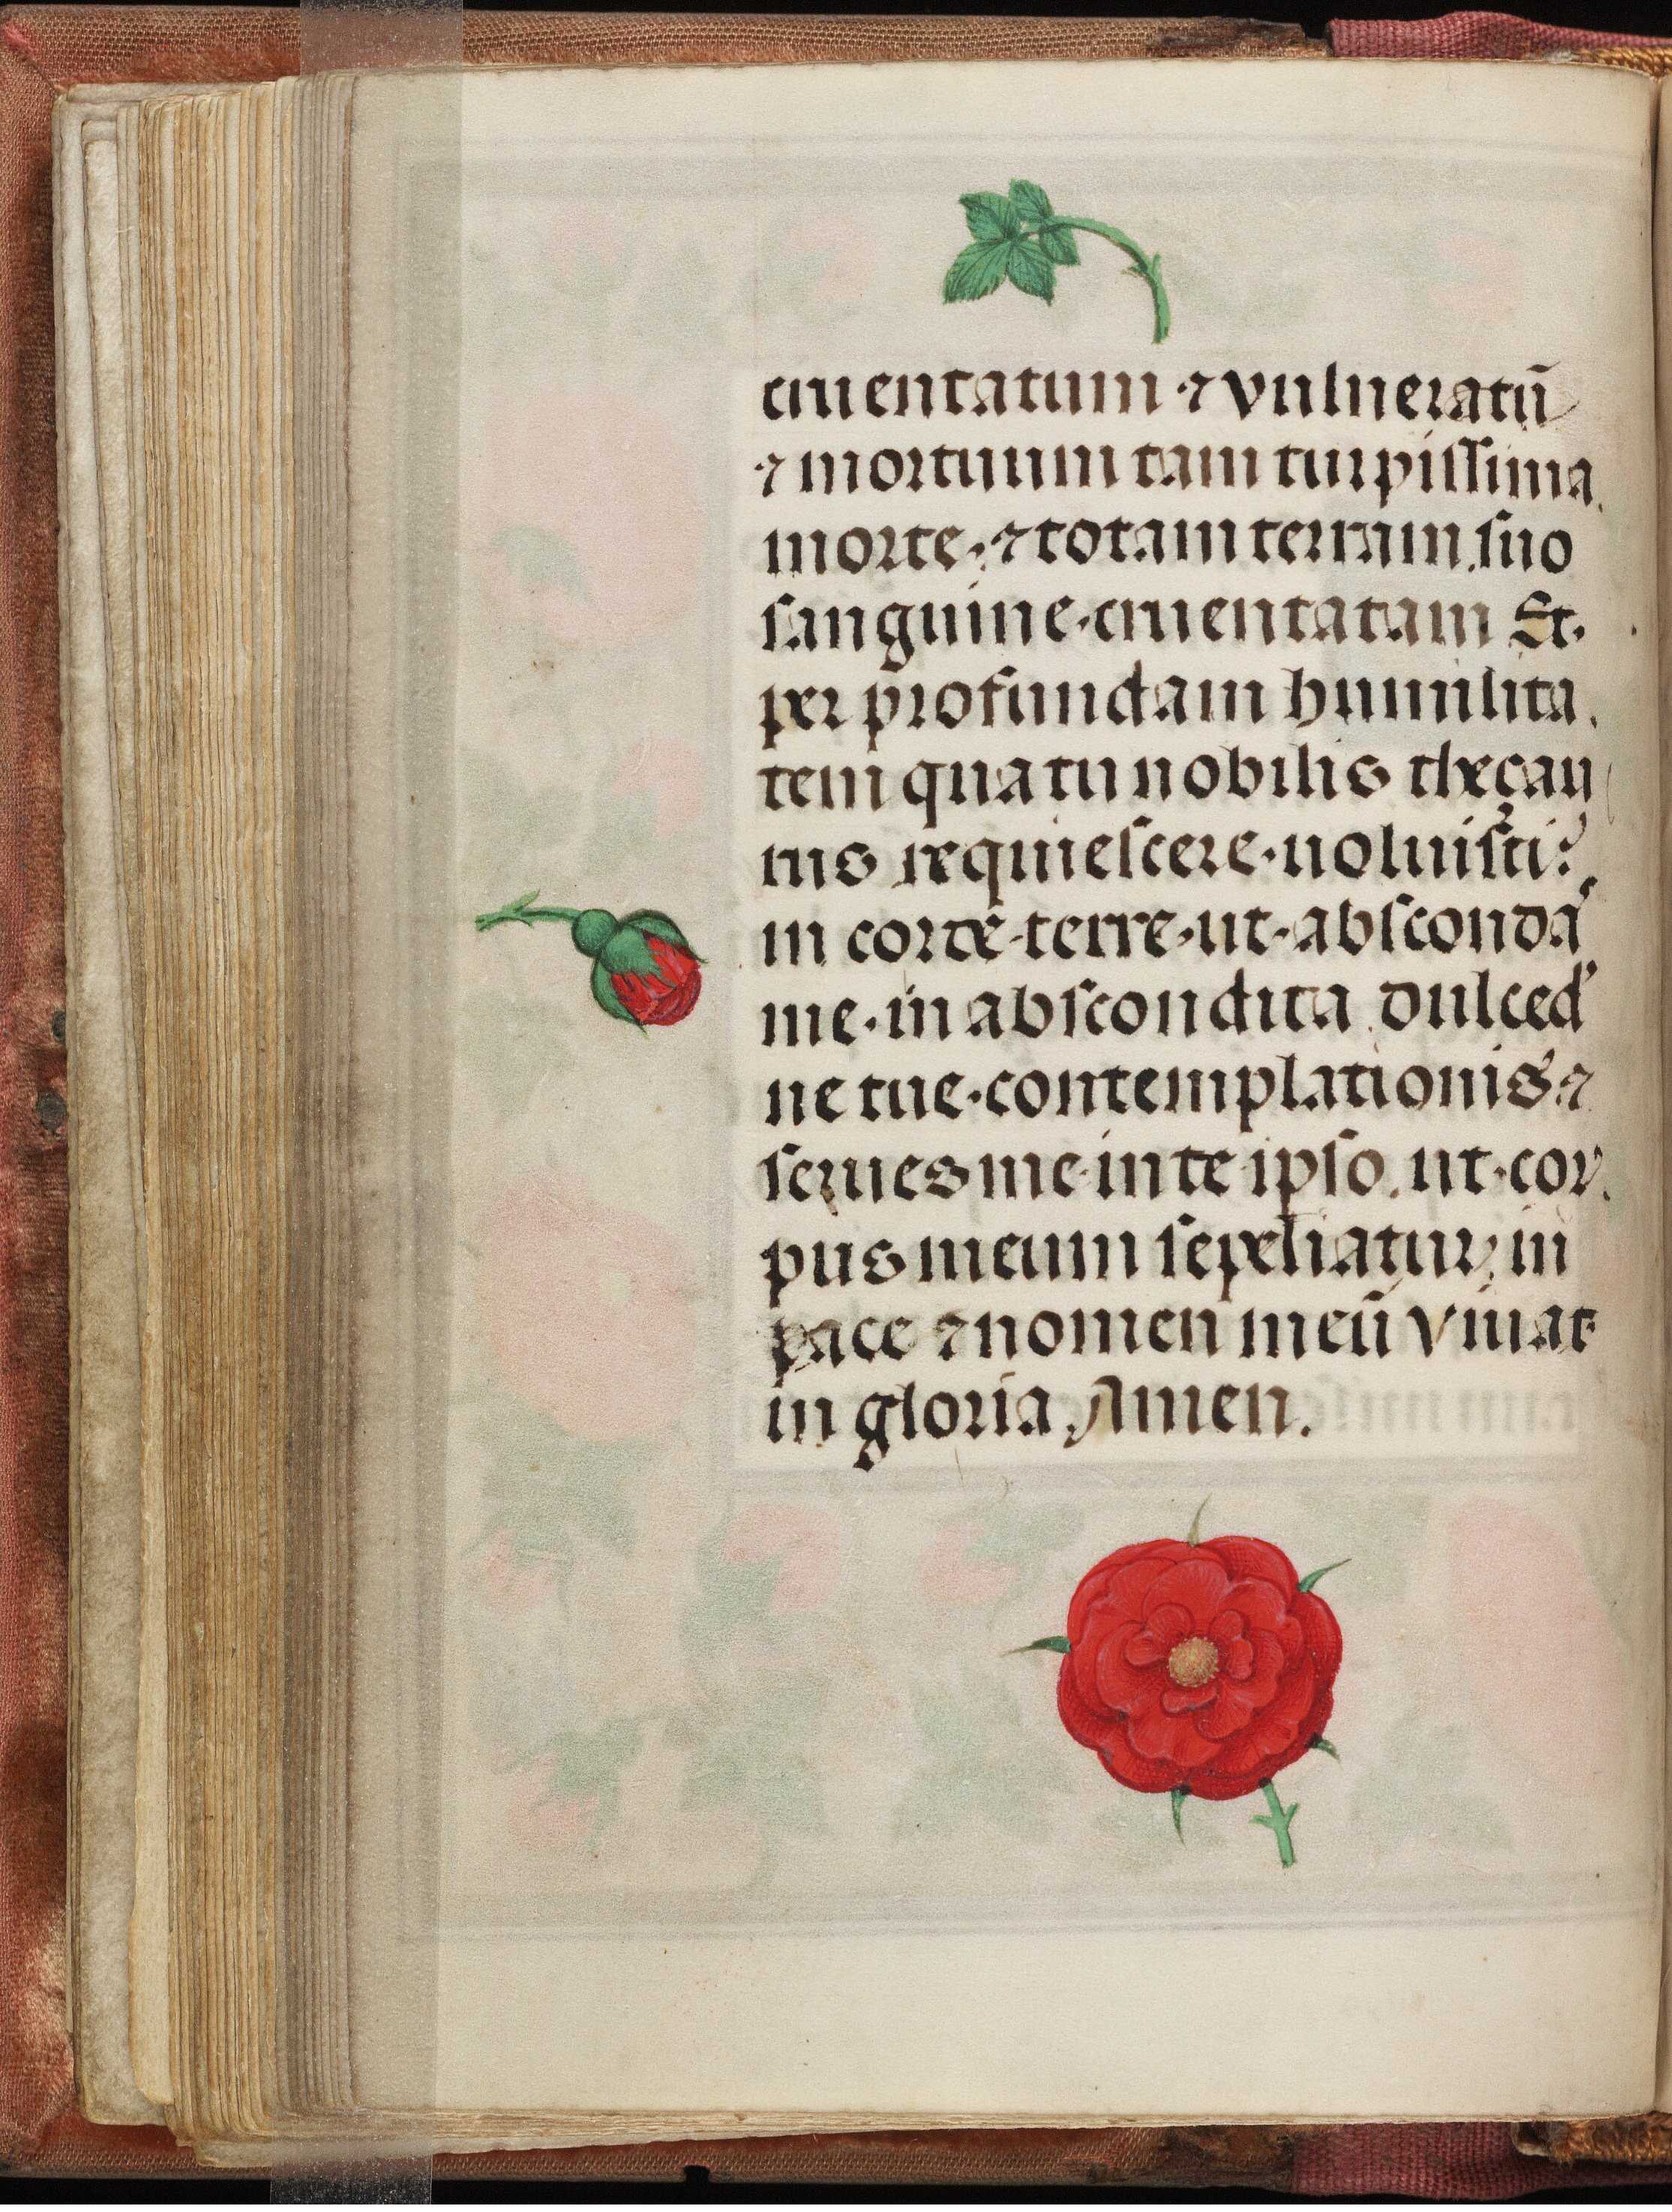 cruentatum ⁊ vulneratū
⁊ mortuum tam turpissima
morte, ⁊ totam terram suo
sanguine cruentatam Et
per profundam humilita
tem qua tu nobilis thesau
rus requiescere uoluisti
in corde terre ut abscondā
me in abscondita dulced
ne tue contemplationis ⁊
serues me in te ipso ut cor
pus meum sepeliatur in
pace ⁊ nomen meū viuat
in gloria Amen.